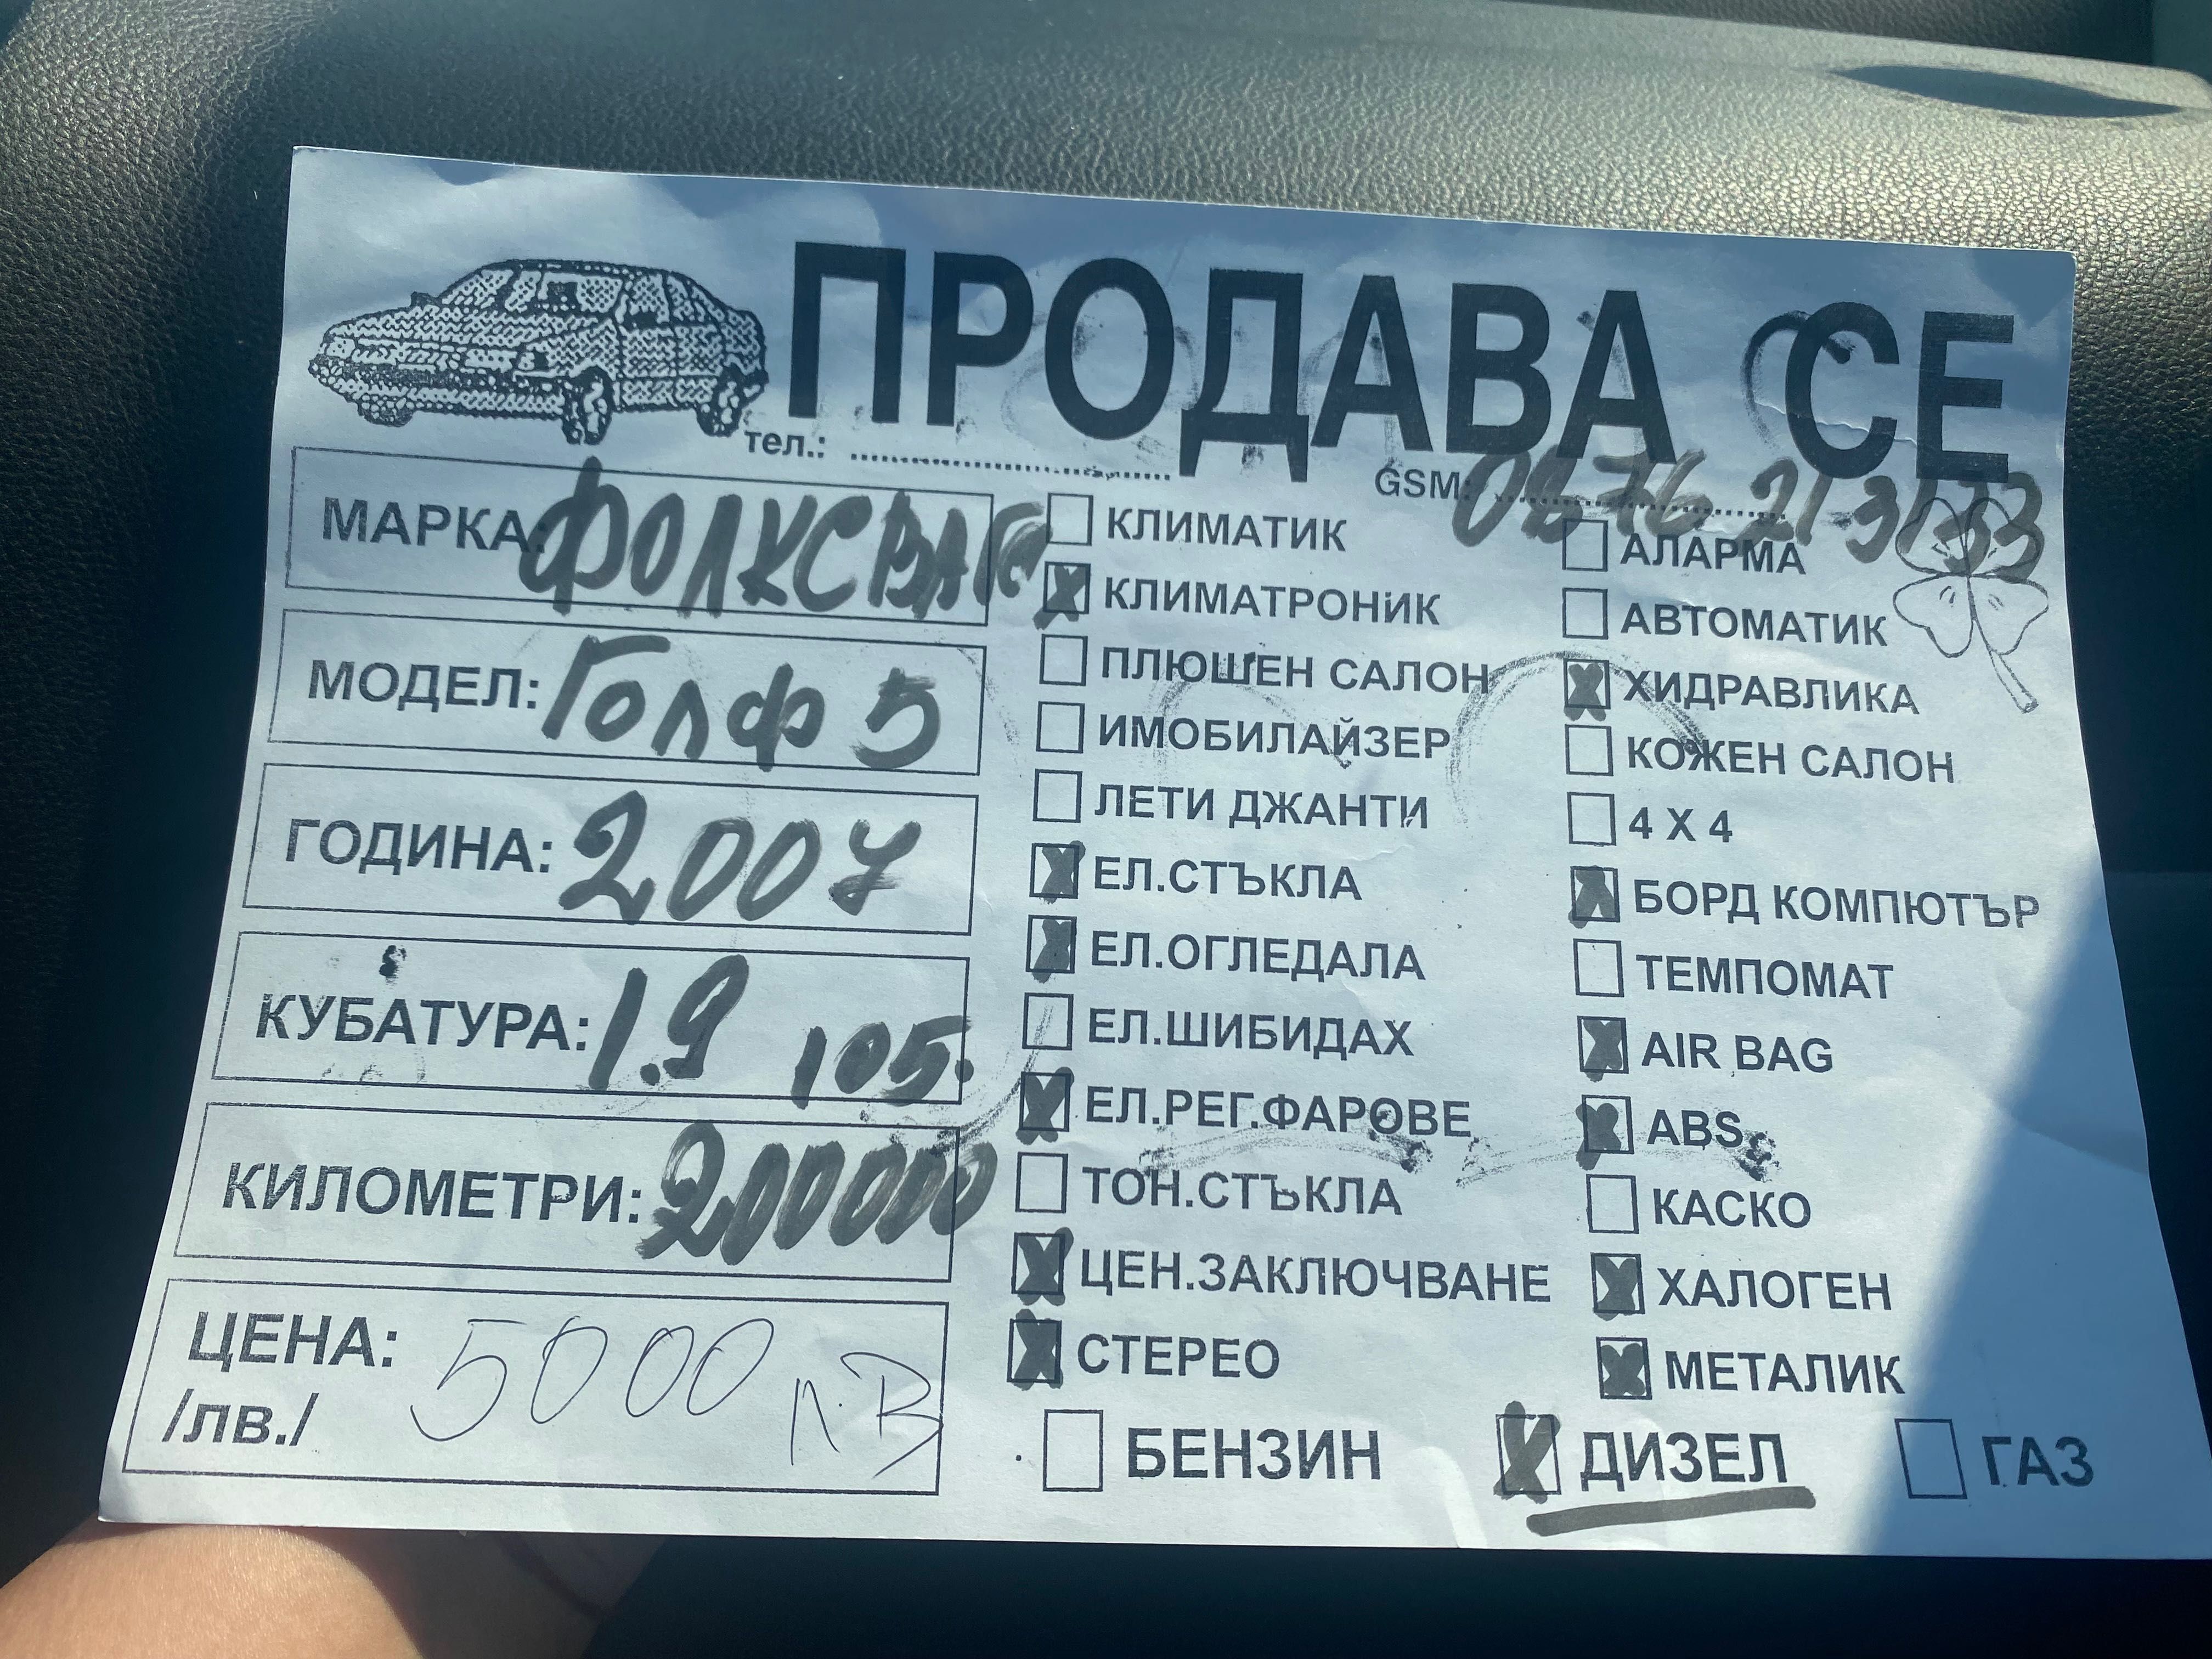 ПРОДАВА СЕ
тел.:
GSM: 0876 21 3133
МАРКА: ФОЛКСВАГ
МОДЕЛ: Голф 5
ГОДИНА: 2007
КУБАТУРА: 1.9 105.
КИЛОМЕТРИ: 200000
ЦЕНА: 5000 лВ
/лв./
КЛИМАТИК
КЛИМАТРОНИК
ПЛЮШЕН САЛОН
ИМОБИЛАЙЗЕР
ЛЕТИ ДЖАНТИ
ЕЛ.СТЪКЛА
ЕЛ.ОГЛЕДАЛА
ЕЛ.ШИБИДАХ
ЕЛ.РЕГ.ФАРОВЕ
ТОН.СТЪКЛА
ЦЕН.ЗАКЛЮЧВАНЕ
СТЕРЕО
АЛАРМА
АВТОМАТИК
ХИДРАВЛИКА
КОЖЕН САЛОН
4 X 4
БОРД КОМПЮТЪР
ТЕМПОМАТ
AIR BAG
ABS
КАСКО
ХАЛОГЕН
МЕТАЛИК
БЕНЗИН ДИЗЕЛ ГАЗ